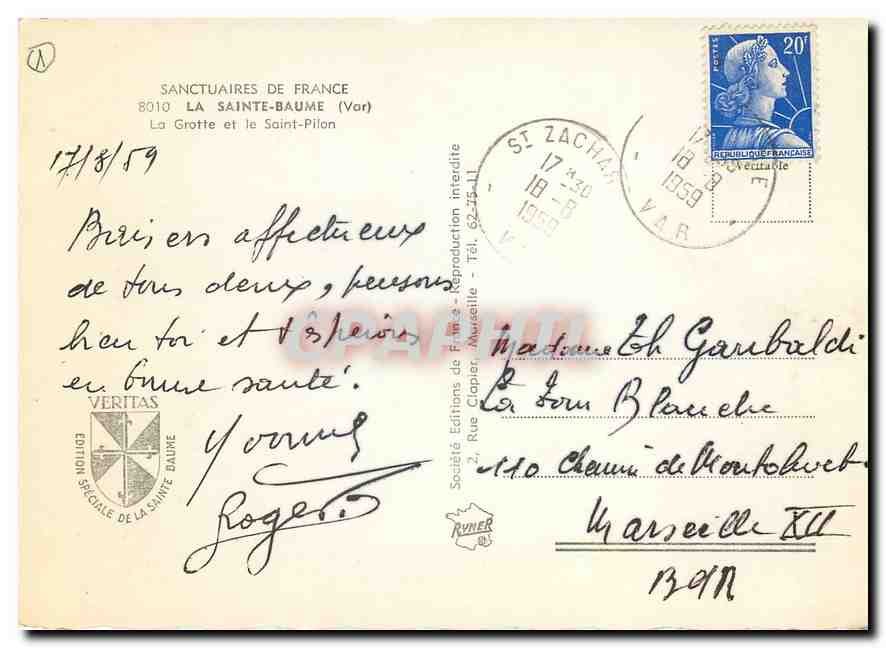 1
SANCTUAIRES DE FRANCE
8010 LA SAINTE-BAUME (Var)
La Grotte et le Saint-Pilon
17/8/59
Baisers affectueux
de tous deux, pensons
bien toi et t'espérons
en bonne santé.
Yvonne
Roger
VERITAS
EDITION SPÉCIALE DE LA SAINTE BAUME
Société Editions de France - Reproduction interdite
2, Rue Clapier, Marseille - Tél. 62-75-11
RYNER
CPAPHIL
POSTES
20F
REPUBLIQUE FRANÇAISE
Véritable
ST ZACHAR
17 H -30
18 -8
1959
V
17
18 8
1959
E
VAR
Madame Th Garibaldi
La Tour Blanche
110 Chemin de Montolivet
Marseille XII
BdR